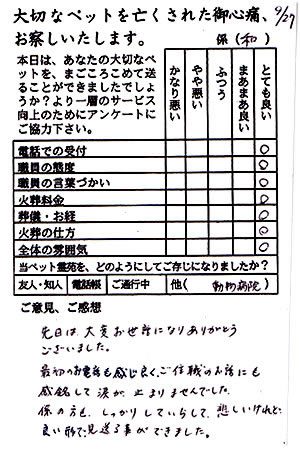 大切なペットを亡くされた御心痛、
9/27
お察しいたします。
係(和)
本日は、あなたの大切なペ
ットを、まごころこめて送
ることができましたでしょ
うか?より一層のサービス
向上のためにアンケートに
ご協力下さい。
かなり悪い
やや悪い
ふつう
まあまあ良い
とても良い
電話での受付 ○
職員の態度 ○
職員の言葉づかい ○
火葬料金 ○
葬儀・お経 ○
火葬の仕方 ○
全体の雰囲気 ○
当ペット霊苑を、どのようにしてご存じになりましたか?
友人・知人 電話帳 ご通行中 他(動物病院)
ご意見、ご感想
先日は大変お世話になりありがとう
ございました。
最初のお電話も感じ良く、ご住職のお話にも
感銘して涙が止まりませんでした。
係の方も、しっかりしていらして、悲しいけれど、
良い形で見送る事ができました。